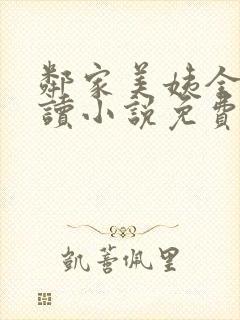 鄰家美姨全
讀小說免費
凱蔷佩里